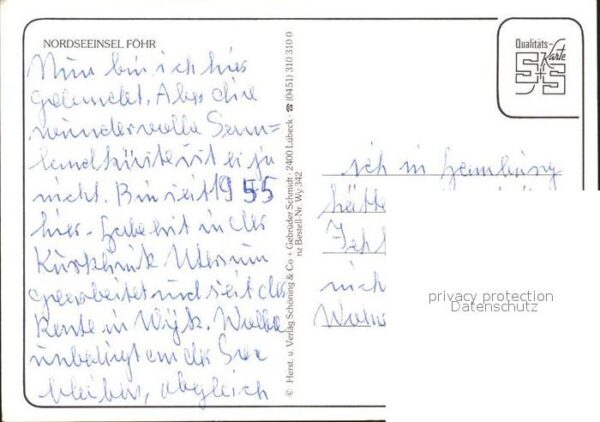 NORDSEEINSEL FÖHR
Nun bin ich hier
gelandet. Aber die
wundervolle Sam=
landküste ist es ja
nicht. Bin seit 1955
hier. Habe erst in der
Kurklinik Utersum
gearbeitet und seit der
Rente in Wyk. Wollte
unbedingt an der See
bleiben, obgleich
ich in Hamburg
hätte
nich
© Herst. u. Verlag Schöning & Co + Gebrüder Schmidt · 2400 Lübeck · ☎ (0451) 310 310 0
nz Bestell-Nr. Wy 342
Qualitäts-
Karte
S+S
privacy protection
Datenschutz